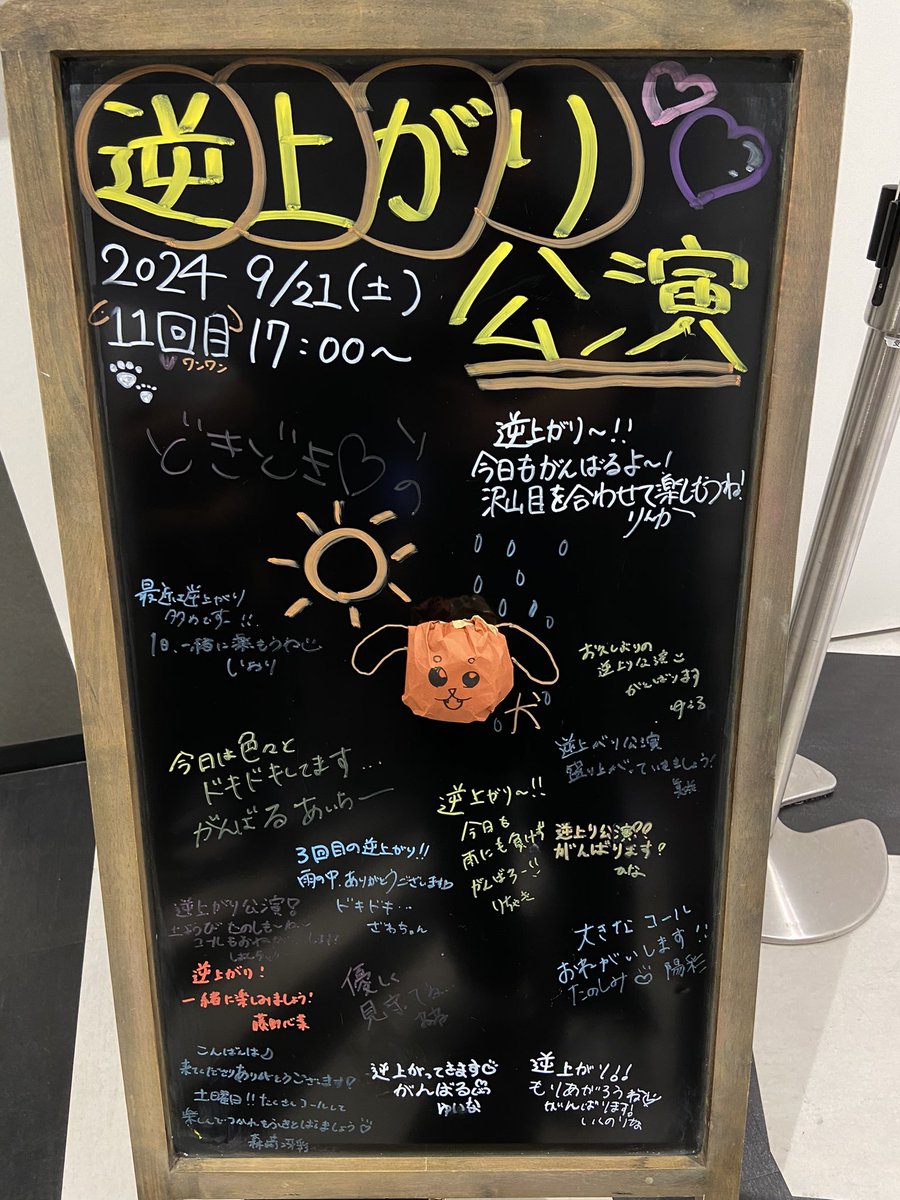 逆上がり
公演
2024 9/21(土)
11回目 17:00〜
ワンワン
どきどき♡
りの
逆上がり〜!!
今日もがんばるよ〜!
沢山目を合わせて楽しもうね!
りんか
最近は逆上がり
多めです〜!!
1日、一緒に楽もうね
しおり
お久しぶりの
逆上り公演
がんばります
ゆころ
犬
逆上がり公演
盛り上がっていきましょう!
今日は色々と
ドキドキしてます…
がんばるあいらー
逆上がり〜!!
今日も
雨にも負けず
がんばろー!!
りちゃき
逆上り公演!!
がんばります!
ひな
3回目の逆上がり!!
雨の中、ありがとうございます
ドキドキ…
ざわちゃん
逆上がり公演!
土ようび たのしも〜ね〜
大きな コール
おねがいします!!
たのしみ 陽彩
逆上がり!
一緒に楽しみましょう!
藤田心菜
優しく
見守ってね
こんばんは♪
来てくださりありがとうございます!
土曜日!!たくさんコールして
逆上がってきます
がんばる
ゆいな
逆上がり!!
もりあがろうね
がんばります!
いくのりな